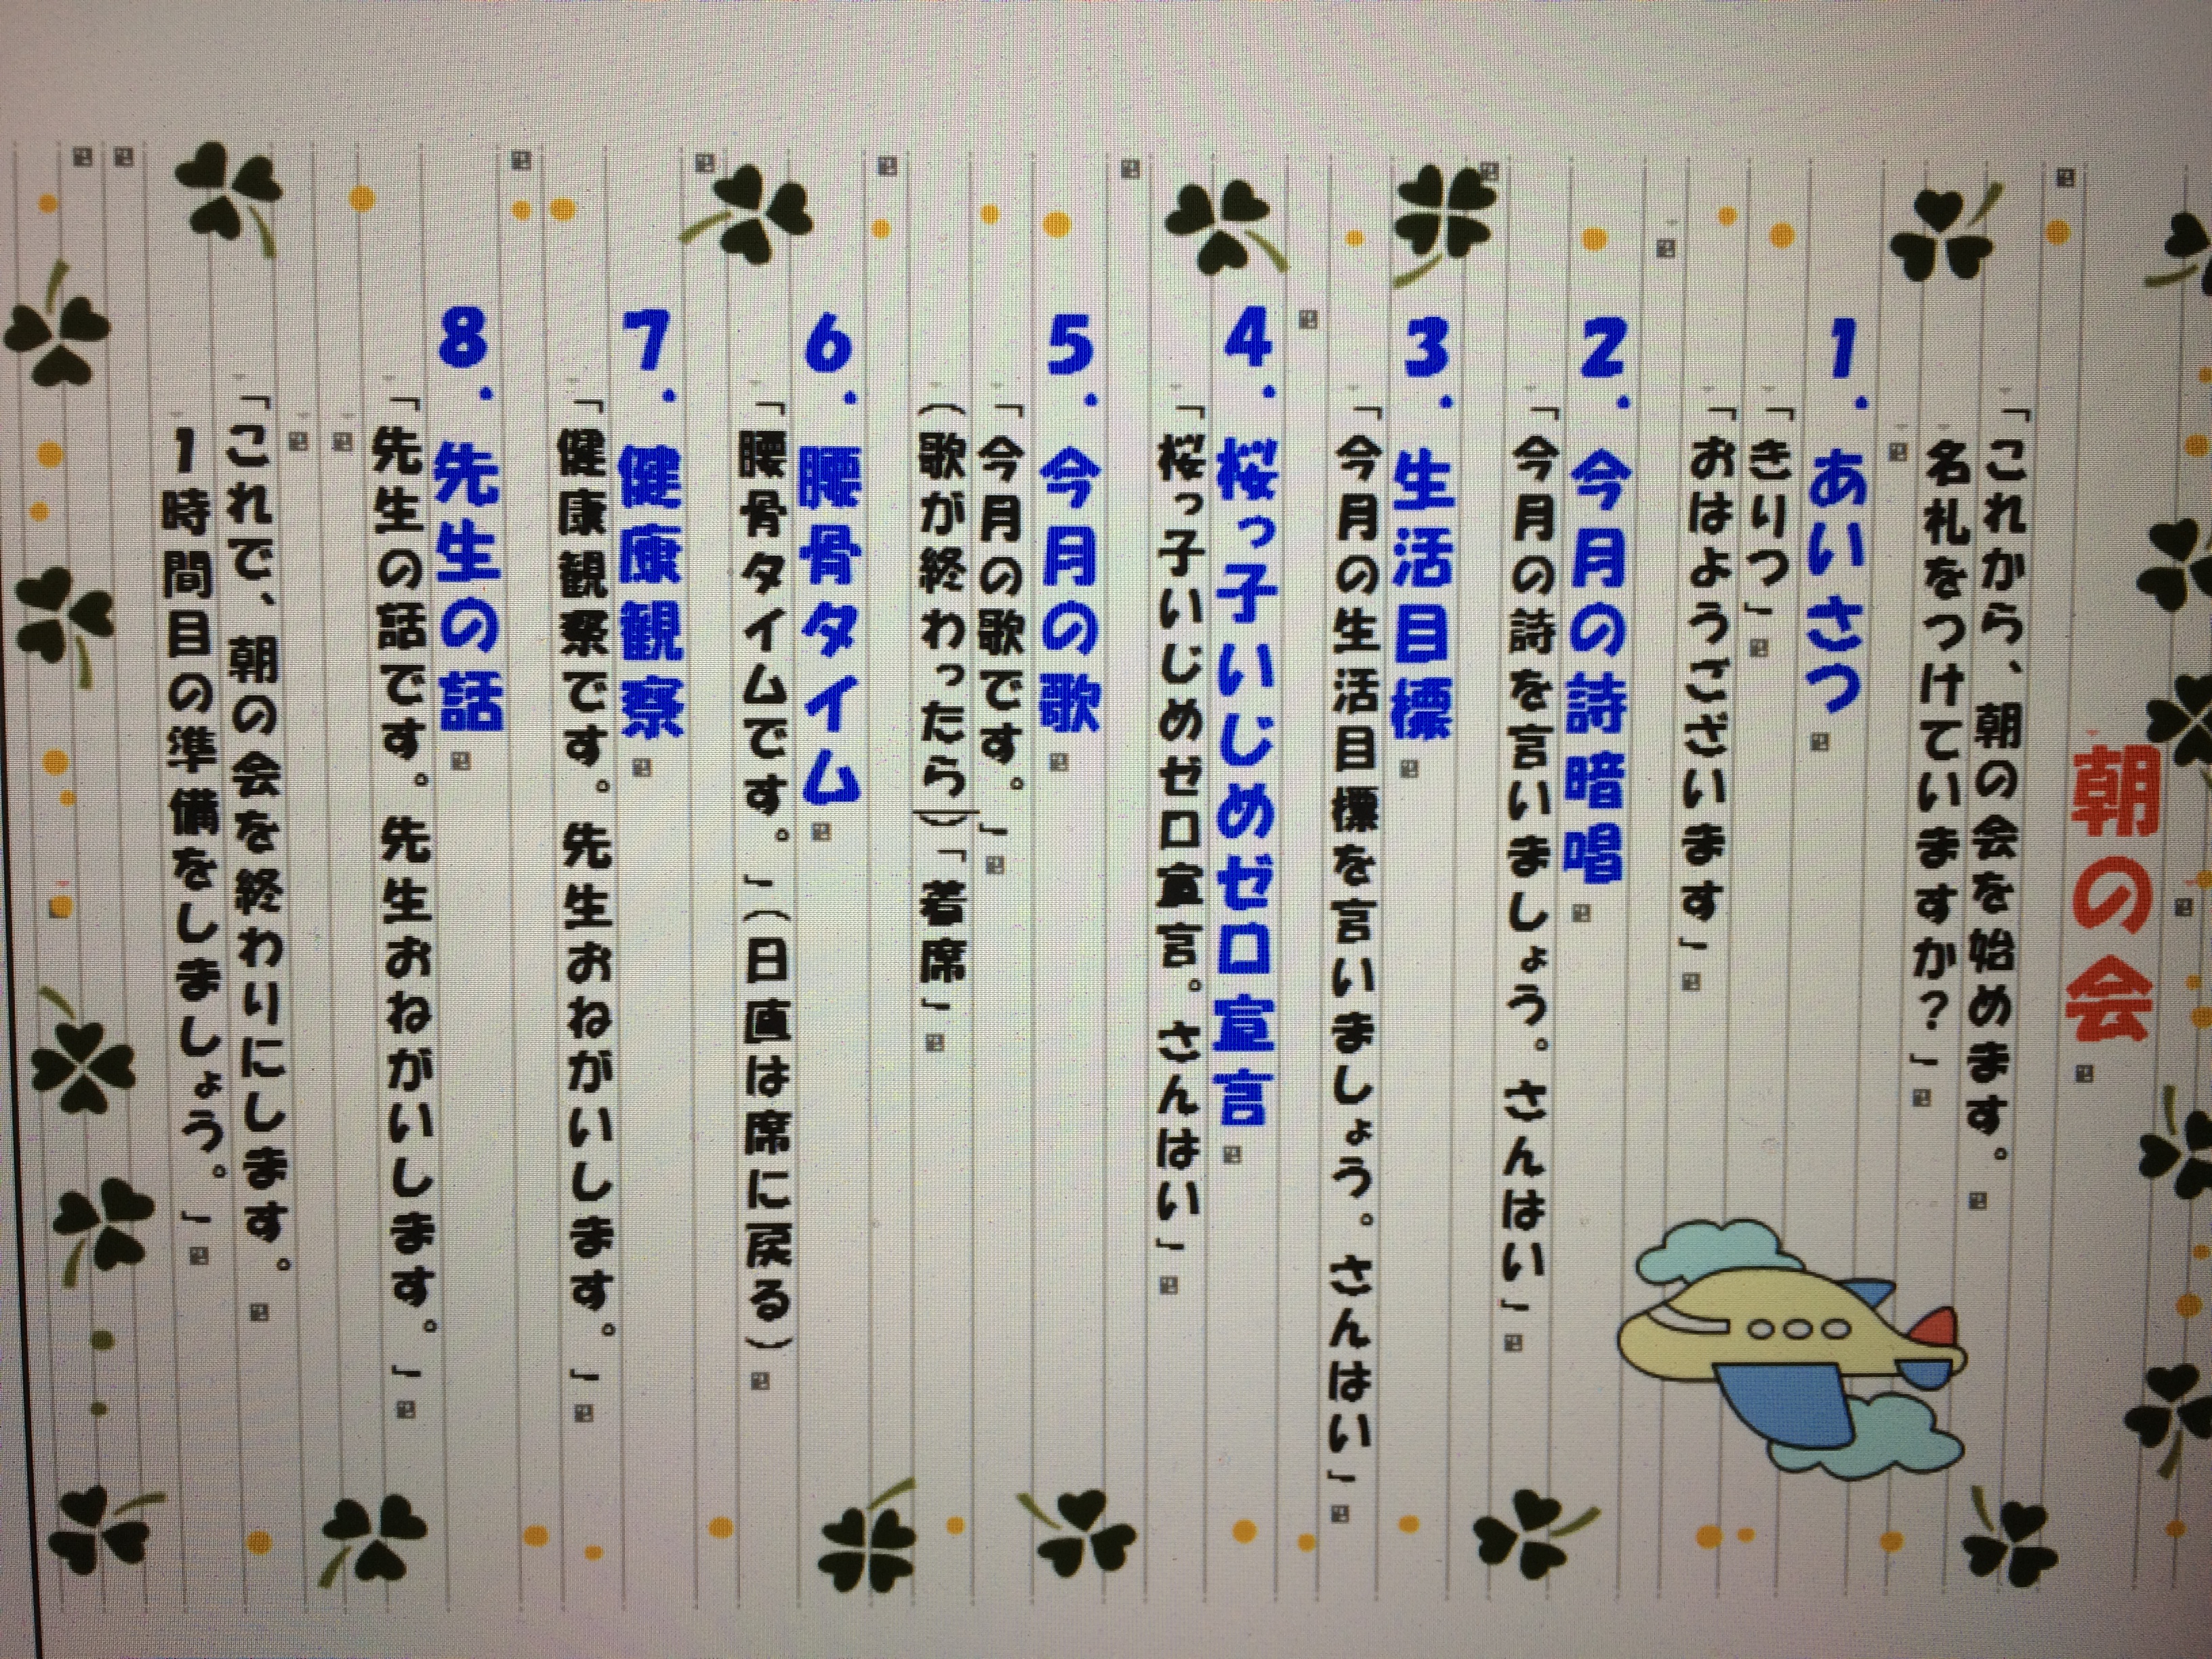 朝の会
「これから、朝の会を始めます。
名札をつけていますか？」
1．あいさつ
「きりつ」
「おはようございます」
2．今月の詩暗唱
「今月の詩を言いましょう。さんはい」
3．生活目標
「今月の生活目標を言いましょう。さんはい」
4．桜っ子いじめゼロ宣言
「桜っ子いじめゼロ宣言。さんはい」
5．今月の歌
「今月の歌です。」
（歌が終わったら）「着席」
6．腰骨タイム
「腰骨タイムです。」（日直は席に戻る）
7．健康観察
「健康観察です。先生おねがいします。」
8．先生の話
「先生の話です。先生おねがいします。」
「これで、朝の会を終わりにします。
1時間目の準備をしましょう。」